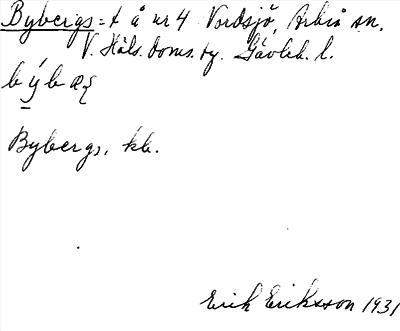 Bybergs = t å nr 4 Nordsjö, Arbrå sn.
V. Häls. doms. ty. Gävleb. l.
Bybergs, kb.
Erik Eriksson 1931